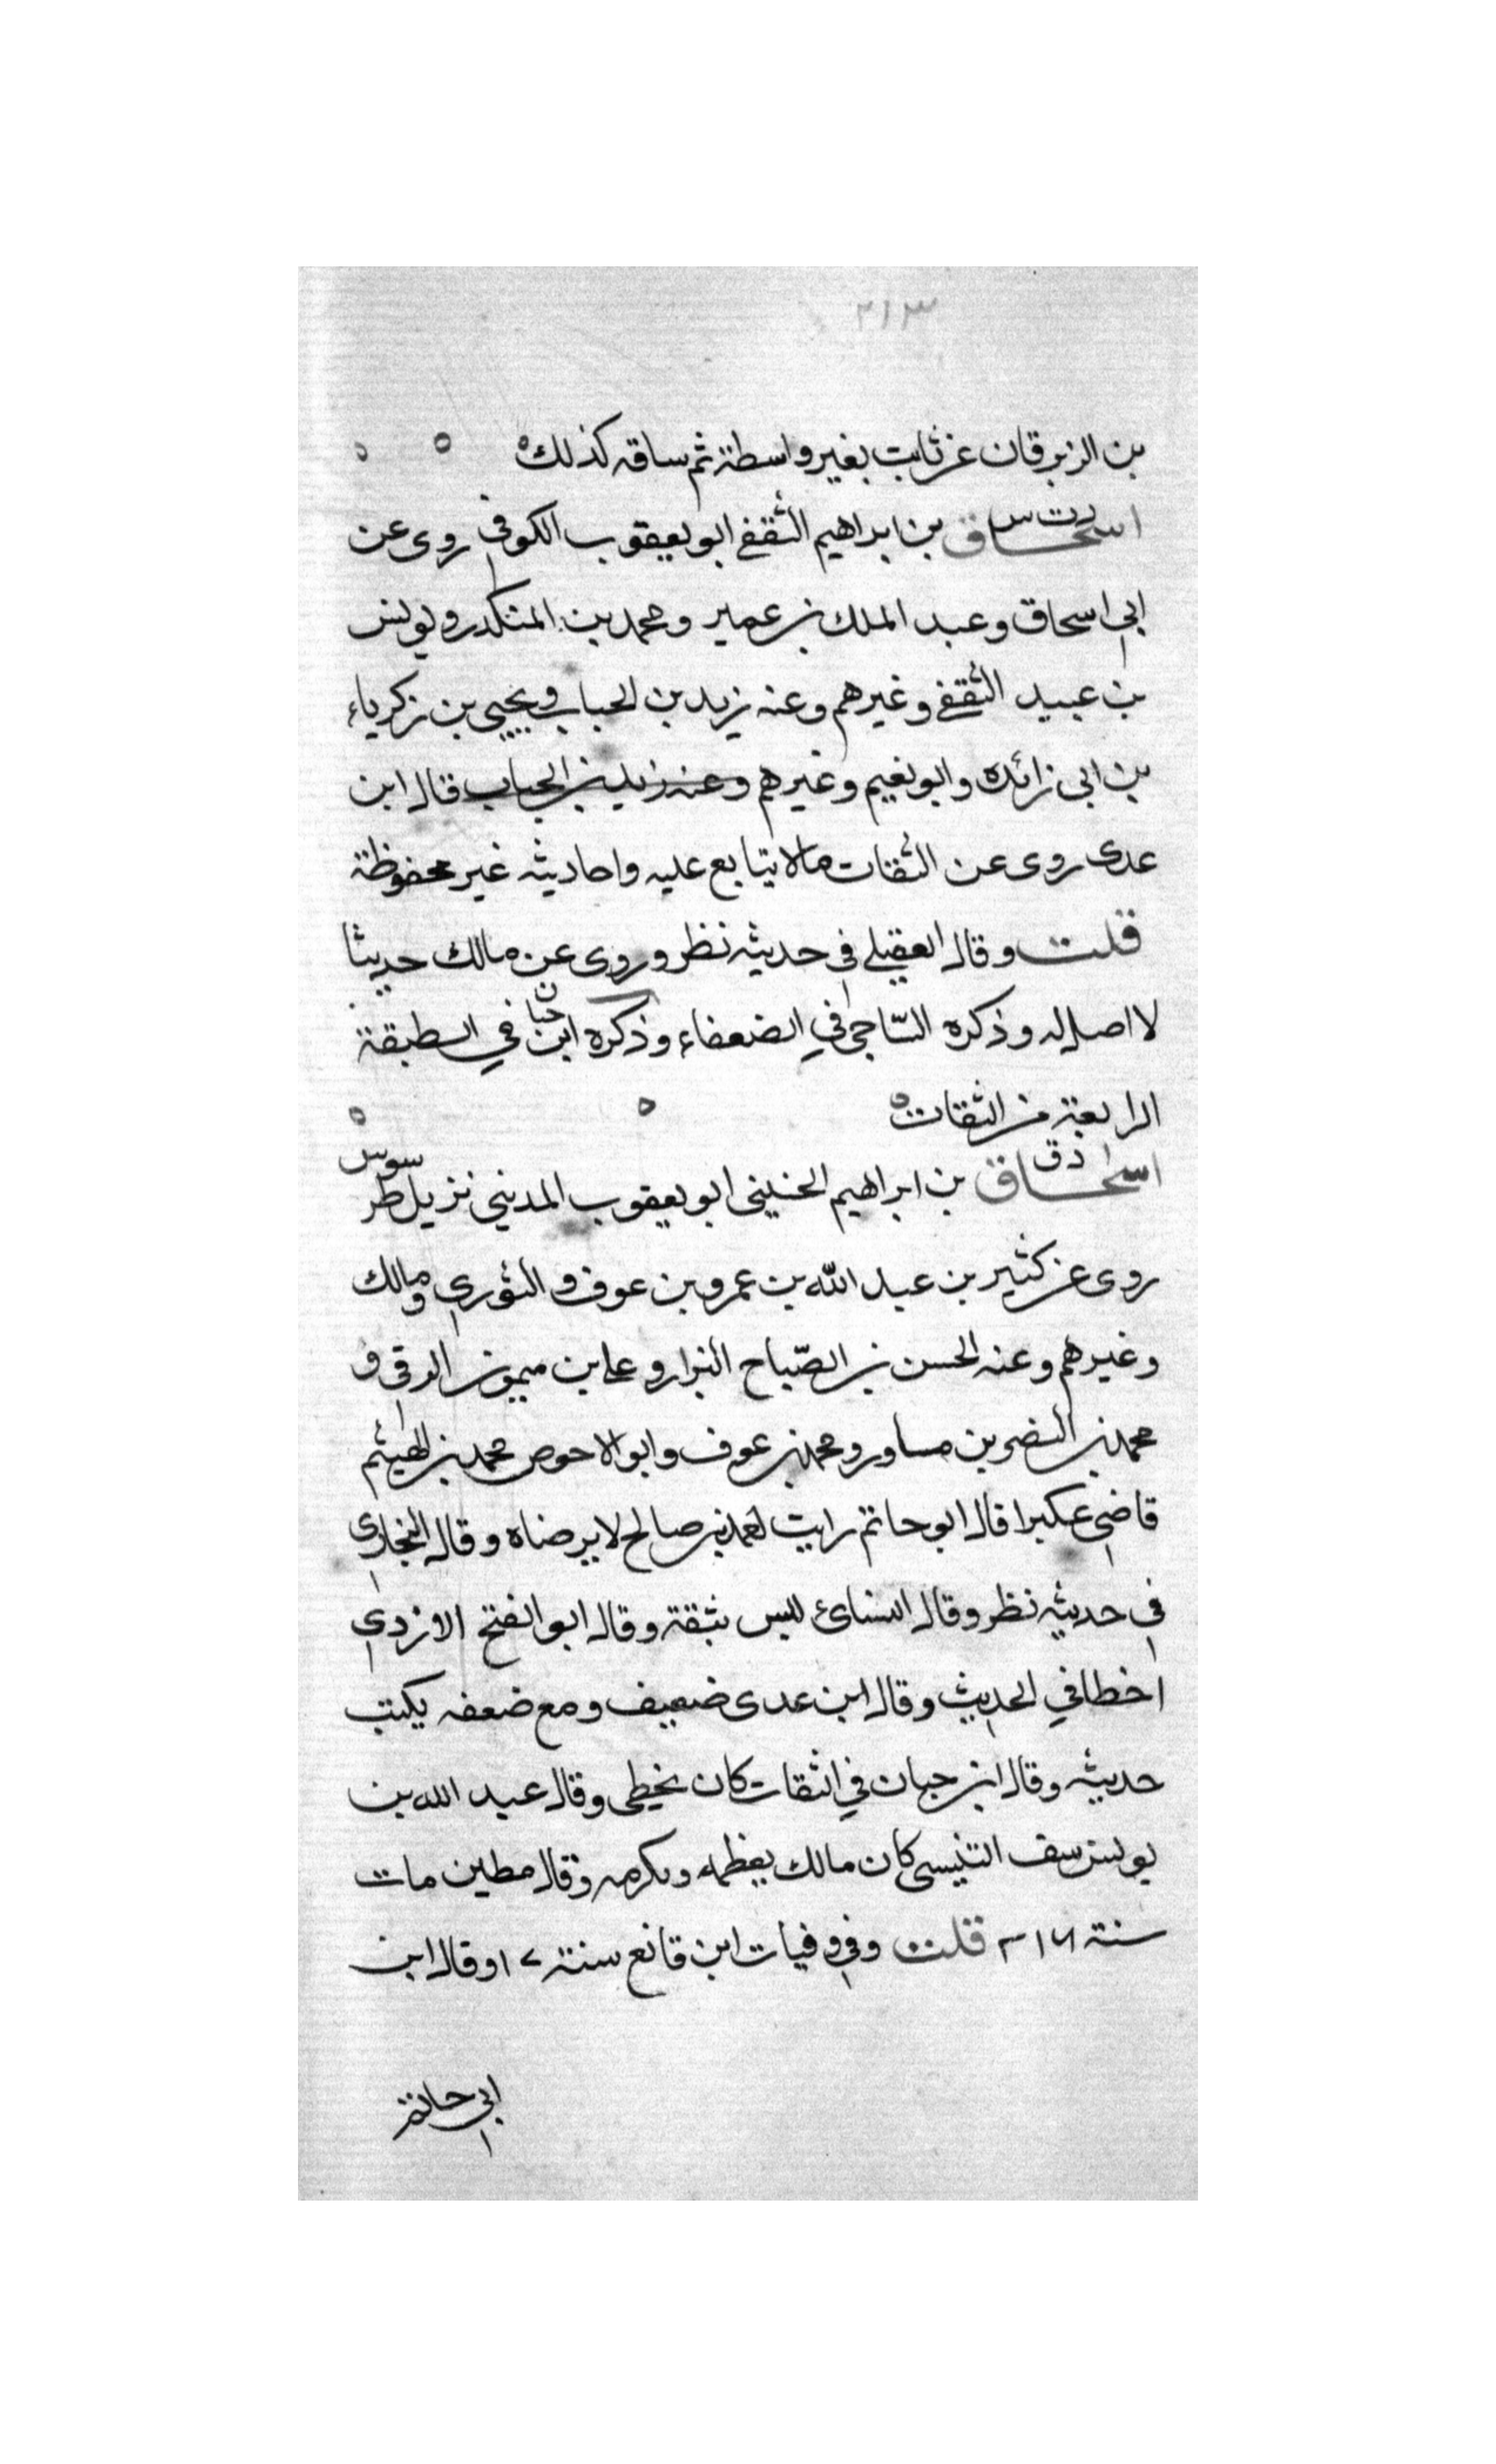 ٢١٣
بن الزبرقان عن ثابت بغير واسطة ثم ساقه كذلك
د ت س
اسحاق بن ابراهيم الثقفي ابو يعقوب الكوفي روى عن
ابي اسحاق وعبد الملك بن عمير ومحمد بن المنكدر ويونس
بن عبيد الثقفي وغيرهم وعنه زيد بن الحباب ويحيى بن زكرياء
بن ابي زائدة وابو نعيم وغيرهم وعنه زيد بن الحباب قال ابن
عدى روى عن الثقات مالا يتابع عليه واحاديثه غير محفوظة
قلت وقال العقيلي في حديثه نظر وروى عن مالك حديثا
لا اصل له وذكره السّاجي في الضعفاء وذكره ابن حبان في الطبقة
الرابعة من الثقات
د ق
اسحاق بن ابراهيم الحنيني ابو يعقوب المديني نزيل طرسوس
روى عن كثير بن عبد الله بن عمرو بن عوف والثوري ومالك
وغيرهم وعنه الحسن بن الصّباح البزار وعلي بن ميمون الرقي و
محمد بن النضر بن مساور ومحمد بن عوف وابو الاحوص محمد بن الهيثم
قاضي عكبرا قال ابو حاتم رايت احمد بن صالح لا يرضاه وقال البخاري
في حديثه نظر وقال النسائ ليس بثقة وقال ابو الفتح الازدي
اخطا في الحديث وقال ابن عدى ضعيف ومع ضعفه يكتب
حديثه وقال ابن حبان في الثقات كان يخطى وقال عبد الله بن
يوسف التنيسي كان مالك يعظمه ويكرمه وقال مطين مات
سنة ٢١٦ قلت وفي وفيات ابن قانع سنة ١٧ وقال ابن
ابي حاتم